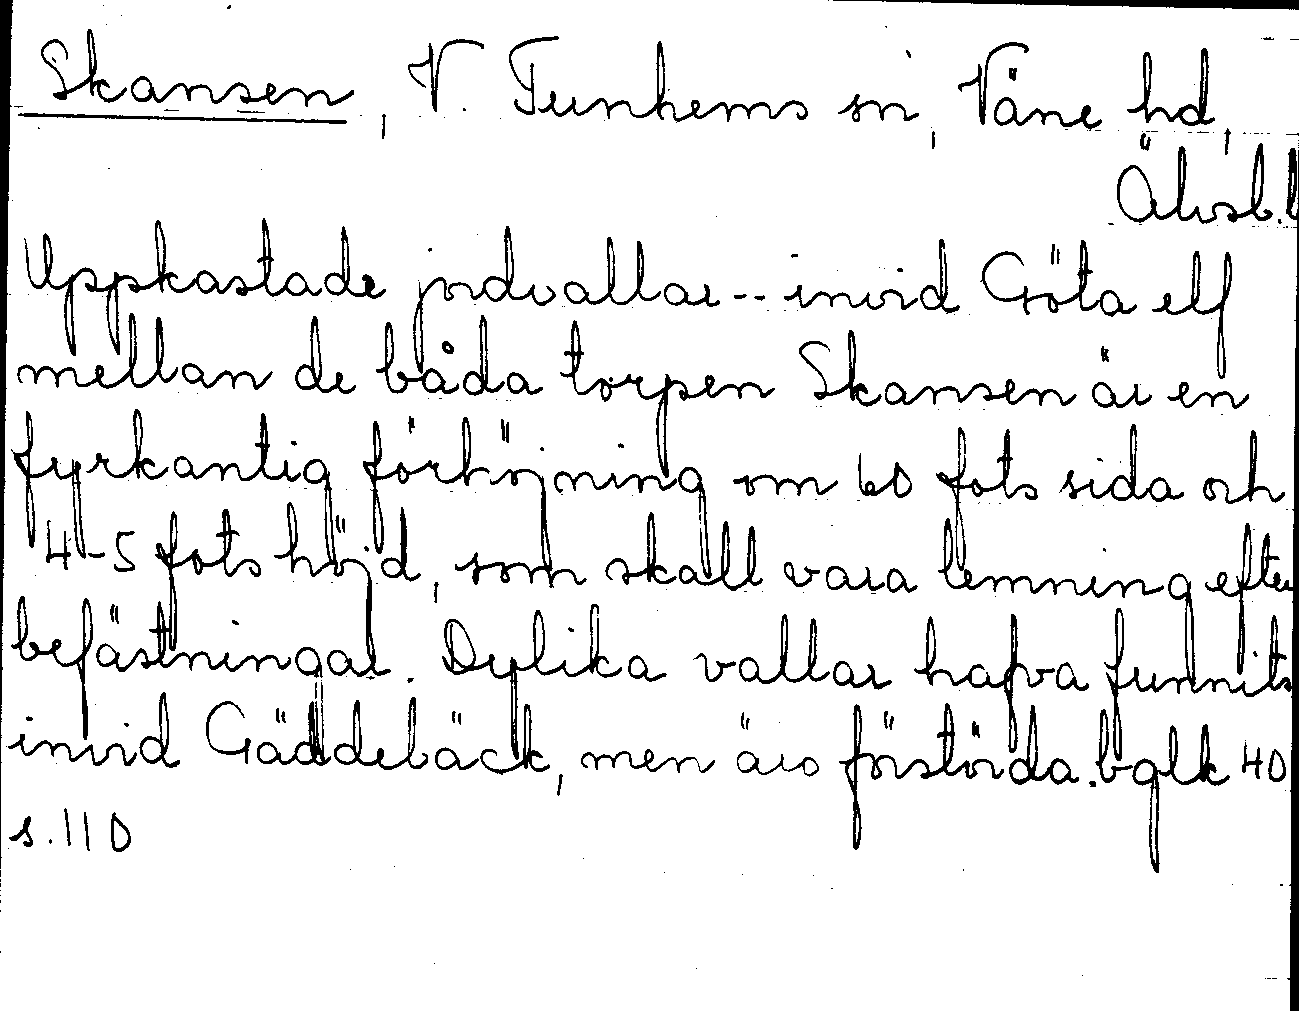 Skansen, V. Tunhems sn, Väne hd,
Älvsb.l
Uppkastade jordvallar -- invid Göta elf
mellan de båda torpen Skansen är en
fyrkantig förhöjning om 60 fots sida och
4-5 fots höjd, som skall vara lemning efter
befästningar. Dylika vallar hafva funnits
invid Gäddebäck, men äro förstörda. bglk 40
s. 110